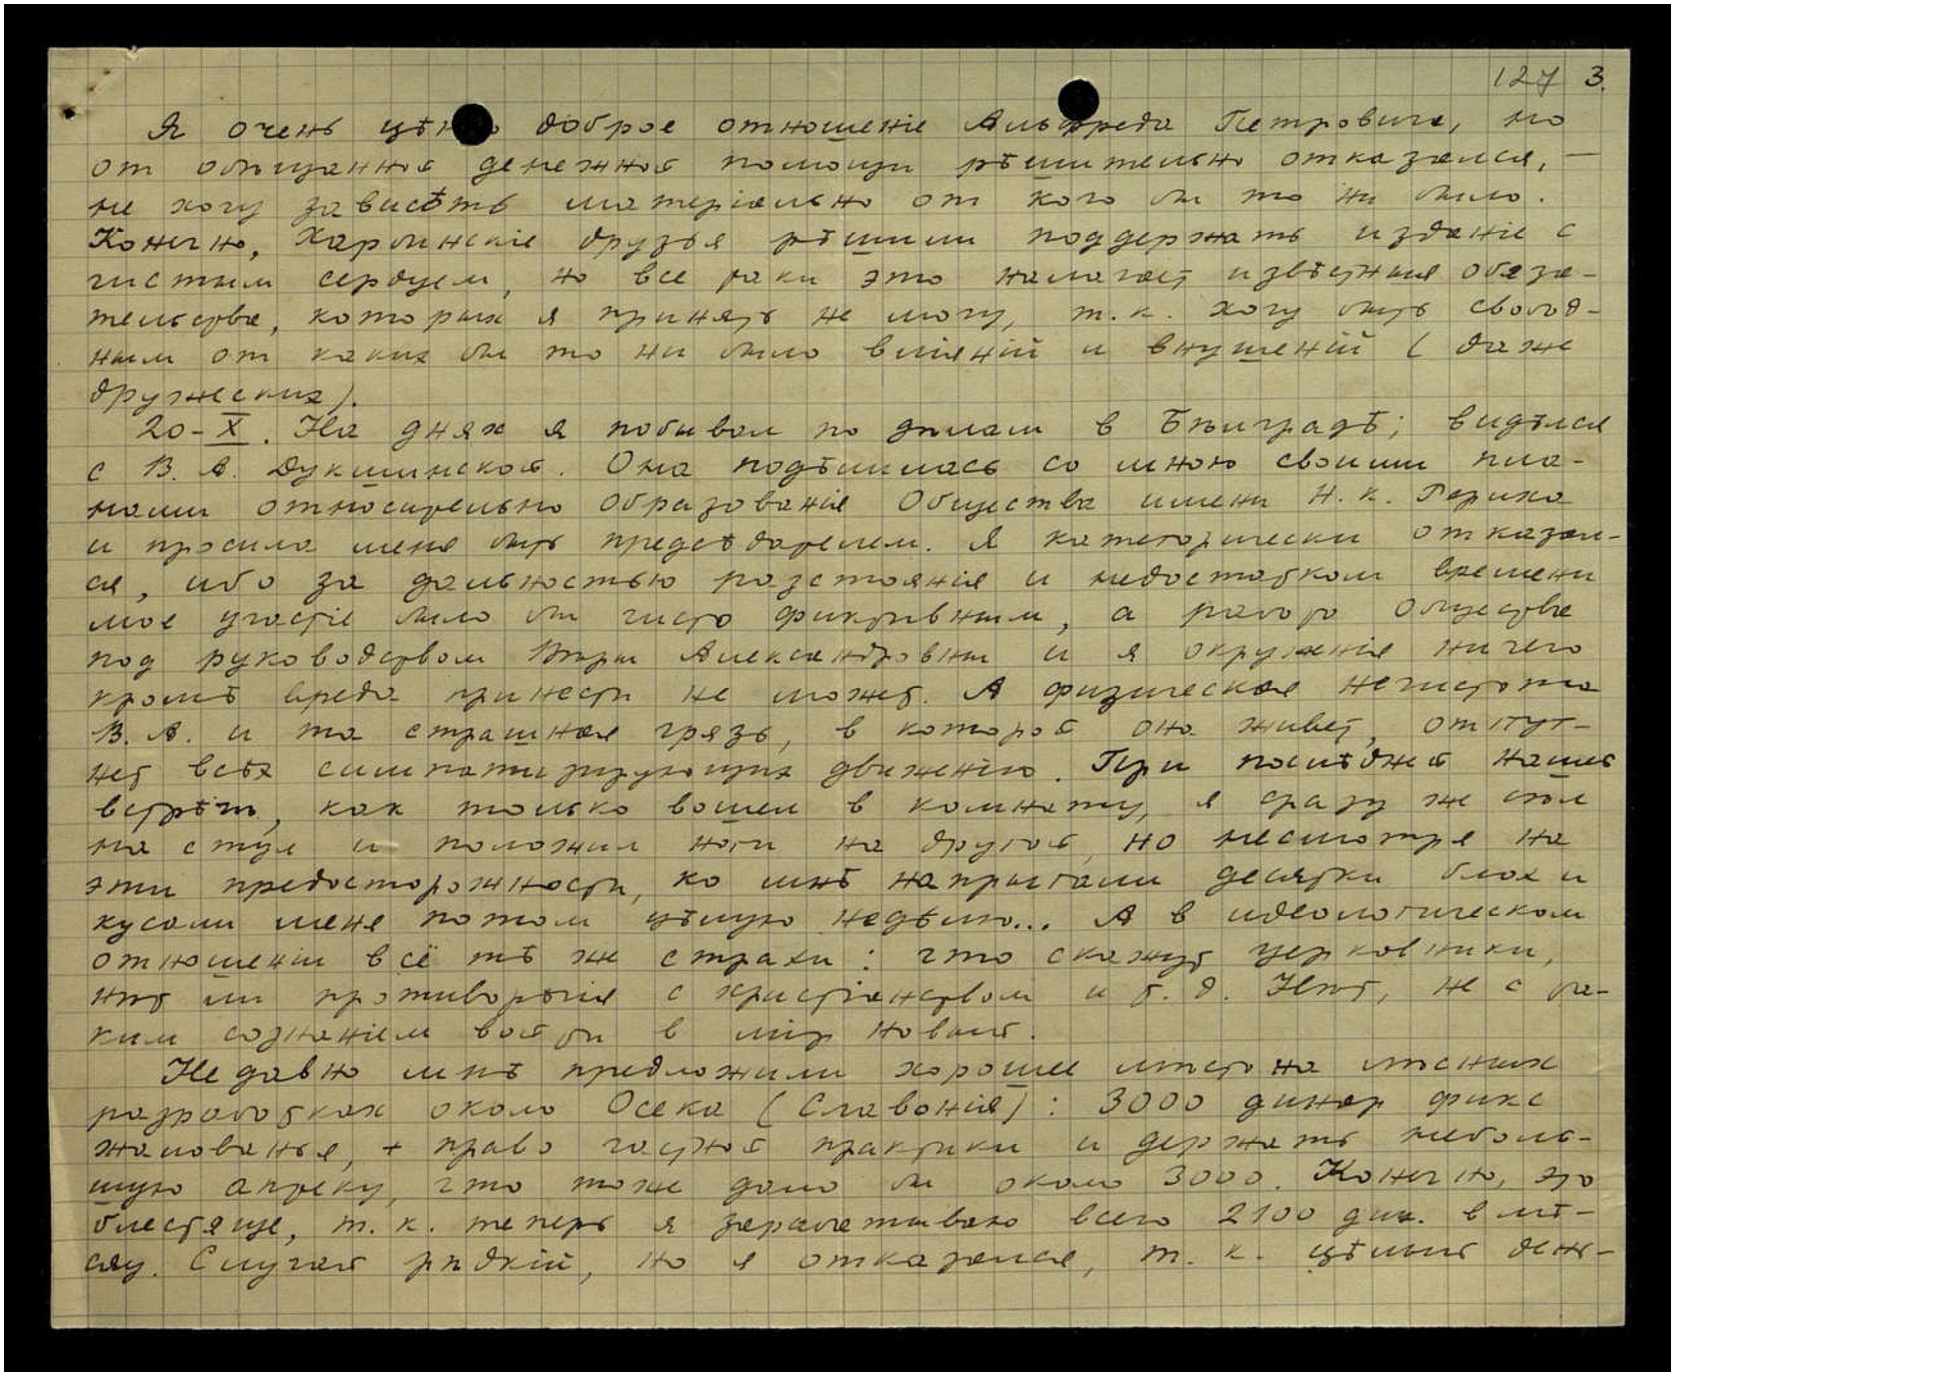 127 3.
Я очень цѣню доброе отношеніе Альфреда Петровича, но
от обѣщанной денежной помощи рѣшительно отказался, —
не хочу зависѣть матеріально от кого бы то ни было.
Конечно, Харбинскіе друзья рѣшили поддержать изданіе с
чистым сердцем, но все таки это налагает извѣстныя обяза-
тельства, которых я принять не могу, т.к. хочу быть свобод-
ным от каких бы то ни было вліяній и внушеній (даже
дружеских).
20-X. На днях я побывал по дѣлам в Бѣлградѣ; видѣлся
с В. А. Дукшинской. Она подѣлилась со мною своими пла-
нами относительно образованія Общества имени Н. К. Рериха
и просила меня быть предсѣдателем. Я категорически отказал-
ся, ибо за дальностью разстоянія и недостатком времени
мое участіе было бы чисто фиктивным, а работа Общества
под руководством Вѣры Александровны и я окруженія ничего
кромѣ вреда принести не может. А физическая нечистота
В. А. и та страшная грязь, в которой она живет, отпуг-
нет всѣх симпатизирующих движенію. При послѣдней нашей
встрѣчѣ, как только вошел в комнату, я сразу же сѣл
на стул и положил ноги на другой, но несмотря на
эти предосторожности, ко мнѣ напрыгали десятки блох и
кусали меня потом цѣлую недѣлю... А в идеологическом
отношеніи всё тѣ же страхи: что скажут церковники,
нѣт ли противорѣчія с христіанством и т. д. Нѣт, не с та-
ким сознаніем войти в мір новый.
Недавно мнѣ предложили хорошее мѣсто на лѣсных
разработках около Осека (Славонія): 3000 динар фикс
жалованья, + право частной практики и держать неболь-
шую аптеку, что тоже дало бы около 3000. Конечно, это
блестяще, т. к. теперь я зарабатываю всего 2100 дин. в мѣ-
сяц. Случай рѣдкій, но я отказался, т. к. цѣлый день-